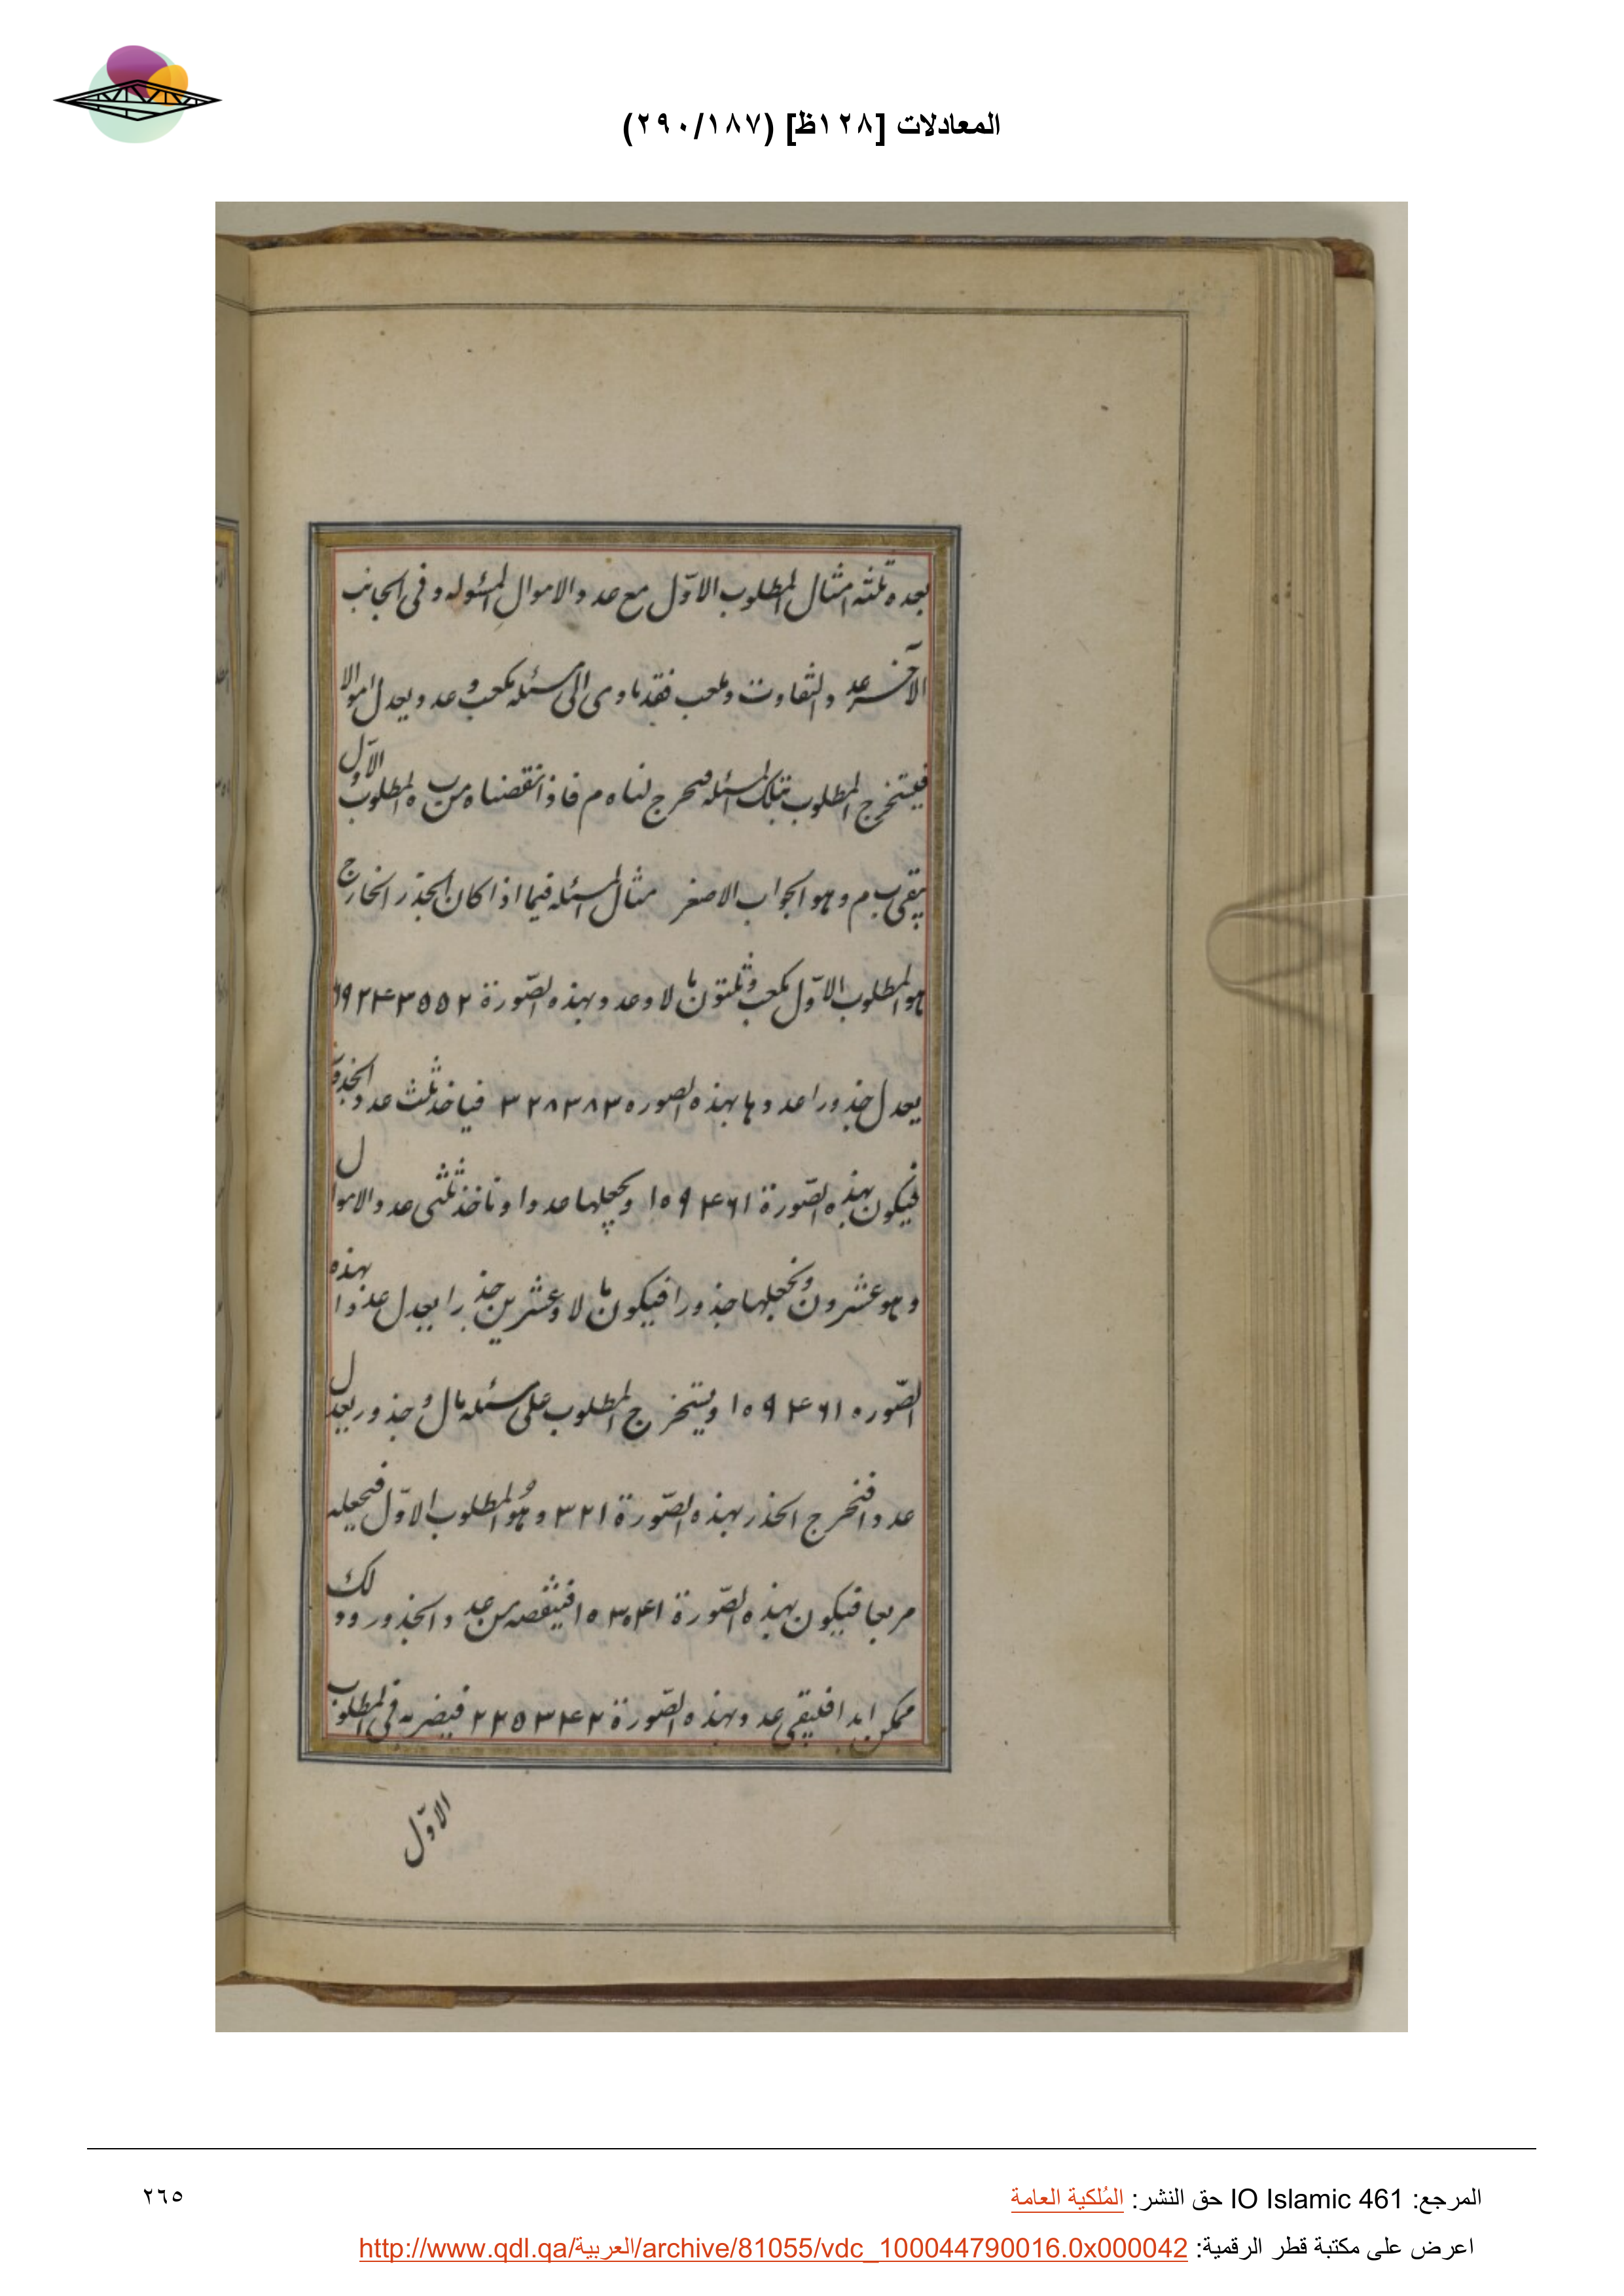 المعادلات [١٢٨ظ] (٢٩٠/١٨٧)
بعده ثلثه امثال المطلوب الاوّل مع عدد الاموال المسئوله و فى الجانب
الآخر عدد التفاوت و مكعب فقد تاوى الى مسئله مكعب و عدد يعدل اموالا
فيستخرج المطلوب بتلك المسئله فيخرج لنا ه م فاذا نقصناه من ب ه المطلوب الاوّل
يبقى ب م و هو الجواب الاصغر مثال المسئله فيما اذا كان الجذر الخارج
هو المطلوب الاوّل مكعب و ثلثون مالا و عدد بهذه الصّورة
يعدل جذورا عددها بهذه الصوره ٣٢٨٣٨٣ فياخذ ثلث عدد الجذور
فيكون بهذه الصّورة ١٥٩٤٦١ و يجعلها عددا و ناخذ ثلثى عدد الاموال
و هو عشرون و نجعلها جذورا فيكون مالا و عشرين جذرا يعدل عددا بهذه
الصّوره ١٥٩٤٦١ و يستخرج المطلوب على مسئله مال و جذور يعدل
عددا فنخرج الجذر بهذه الصّورة ٣٢١ و هو المطلوب الاوّل فنجعله
مربعا فيكون بهذه الصّورة فينقصه من عدد الجذور و ذلك
ممكن ابدا فليبقى عدد بهذه الصّورة ٢٢٥٣٤٢ فيضربه فى المطلوب
الاوّل
المرجع: IO Islamic 461 حق النشر: المُلكية العامة
٢٦٥
اعرض على مكتبة قطر الرقمية: http://www.qdl.qa/العربية/archive/81055/vdc_100044790016.0x000042